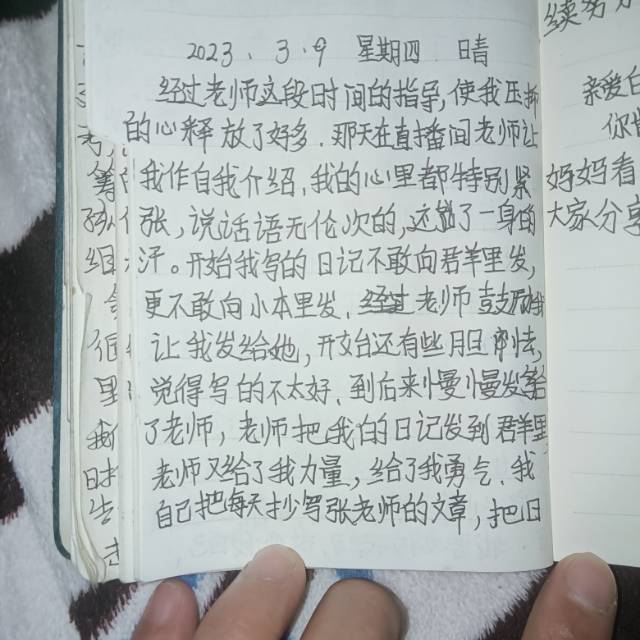 2023、3.9 星期四 日青
经过老师这段时间的指导,使我压抑
的心释放了好多.那天在直播间老师让
我作自我介绍,我的心里都特别紧
张,说话语无伦次的,这 了一身的
汗。开始我写的日记不敢向君羊里发,
更不敢向小本里发.经过老师鼓励我
让我发给她,开始还有些胆 怯,
觉得写的不太好、到后来慢慢发给
了老师,老师把我的日记发到君羊里
老师又给了我力量,给了我勇气.我
自己把每天抄写张老师的文章,把旧
续努
亲爱
你
妈妈看
大家分享